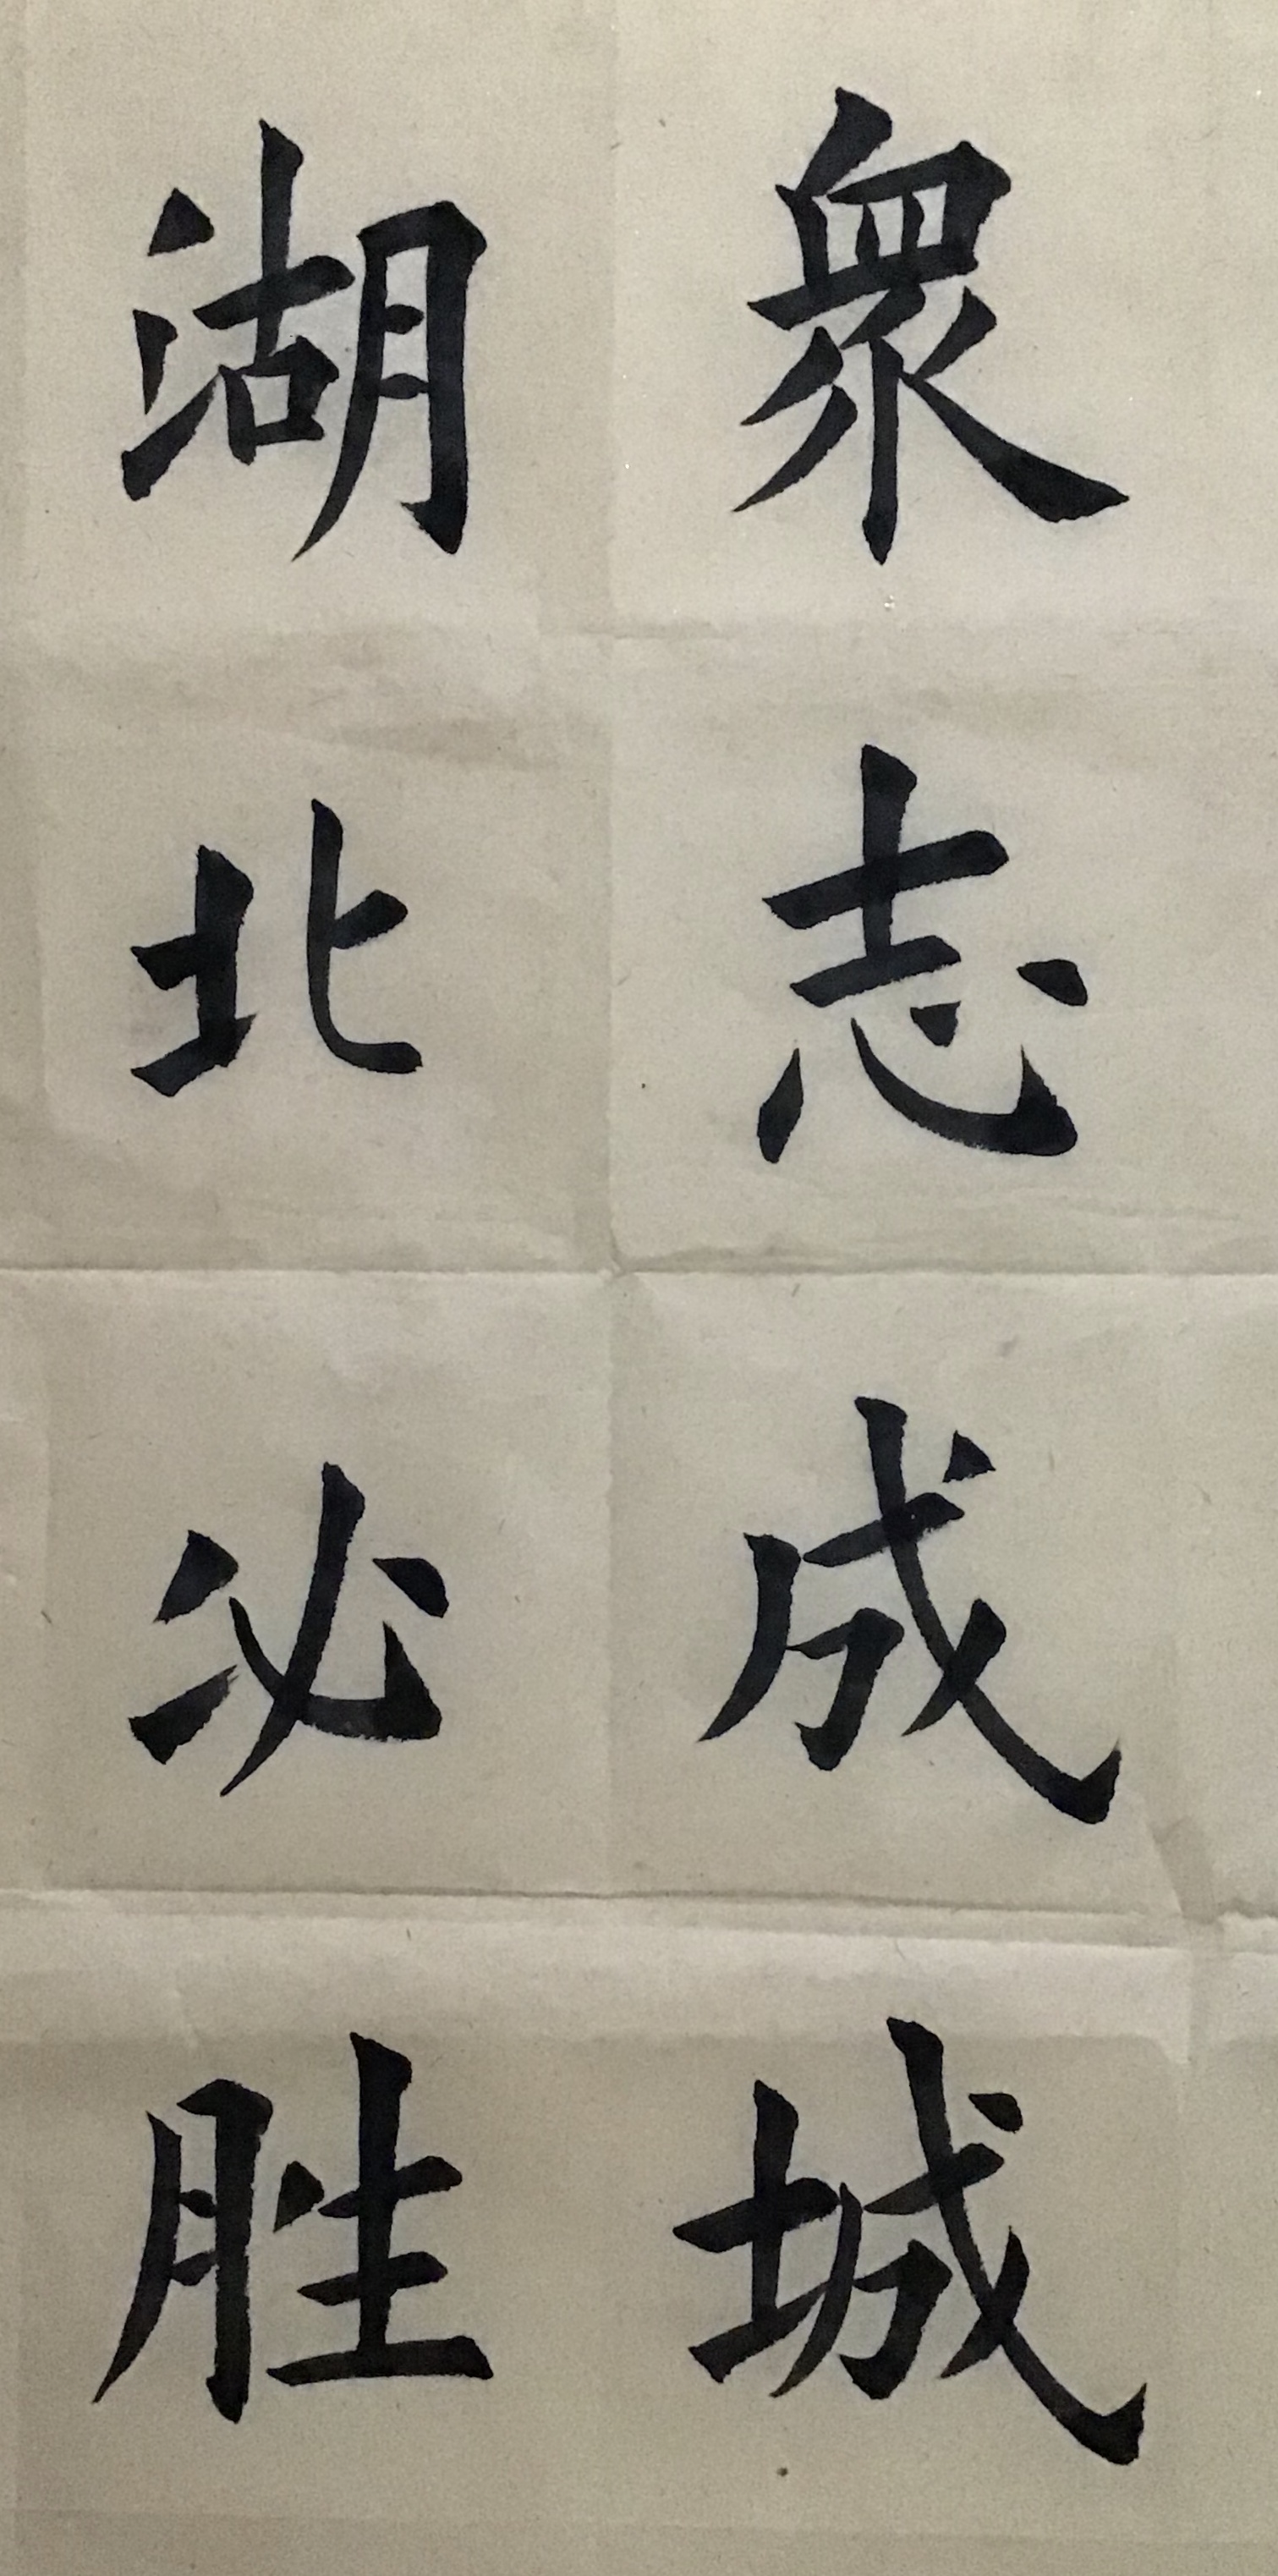 眾志成城
湖北必胜